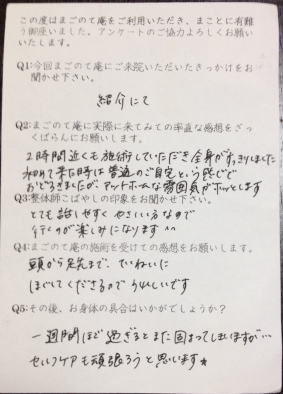 この度はまごのて庵をご利用いただき、まことに有難
う御座いました。アンケートのご協力よろしくお願い
いたします。
Q1:今回まごのて庵にご来院いただいたきっかけをお
聞かせ下さい。
紹介にて
Q2:まごのて庵に実際に来てみての率直な感想をざっ
くばらんにお願いします。
2時間近くも施術していただき全身がすっきりしました
初めて来た時は普通のご自宅という感じで
おどろきましたが、アットホームな雰囲気がホッとします
Q3:整体師こばやしの印象をお聞かせ下さい。
とても話しやすくやさしい方なので
行くのが楽しみになります^^
Q4:まごのて庵の施術を受けての感想をお願いします。
頭から足先まで、ていねいに
ほぐしてくださるのでうれしいです
Q5:その後、お身体の具合はいかがでしょうか？
一週間ほど過ぎるとまた固まってしまいますが…
セルフケアも頑張ろうと思います★